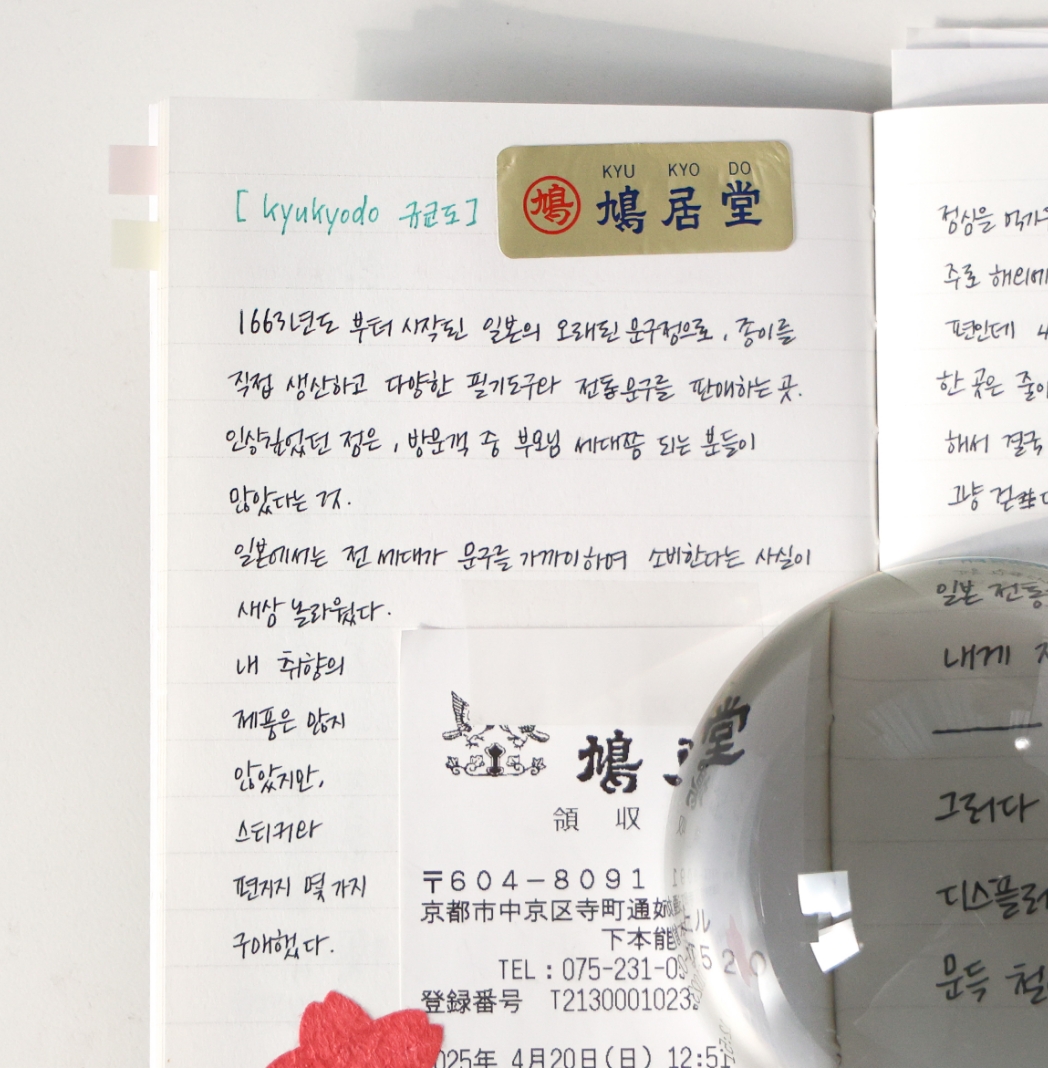 [ kyukyodo 규쿄도 ]
KYU KYO DO
鳩 鳩居堂
1663년도 부터 시작된 일본의 오래된 문구점으로, 종이를
직접 생산하고 다양한 필기도구와 전통문구를 판매하는 곳.
인상깊었던 점은, 방문객 중 부모님 세대쯤 되는 분들이
많았다는 것.
일본에서는 전 세대가 문구를 가까이하며 소비한다는 사실이
새삼 놀라웠다.
내 취향의
제품은 많지
않았지만,
스티커와
편지지 몇 가지
구매했다.
鳩 堂
領 収
〒604-8091
京都市中京区寺町通姉
下本能
TEL:075-231-0
登録番号 T2130001023
025年 4月20日(日) 12:51
점심을 먹
주로 해외에
편인데
한 곳은 줄
해서 결국
그냥
일본 전통
내게
그러다
디스플레
문득